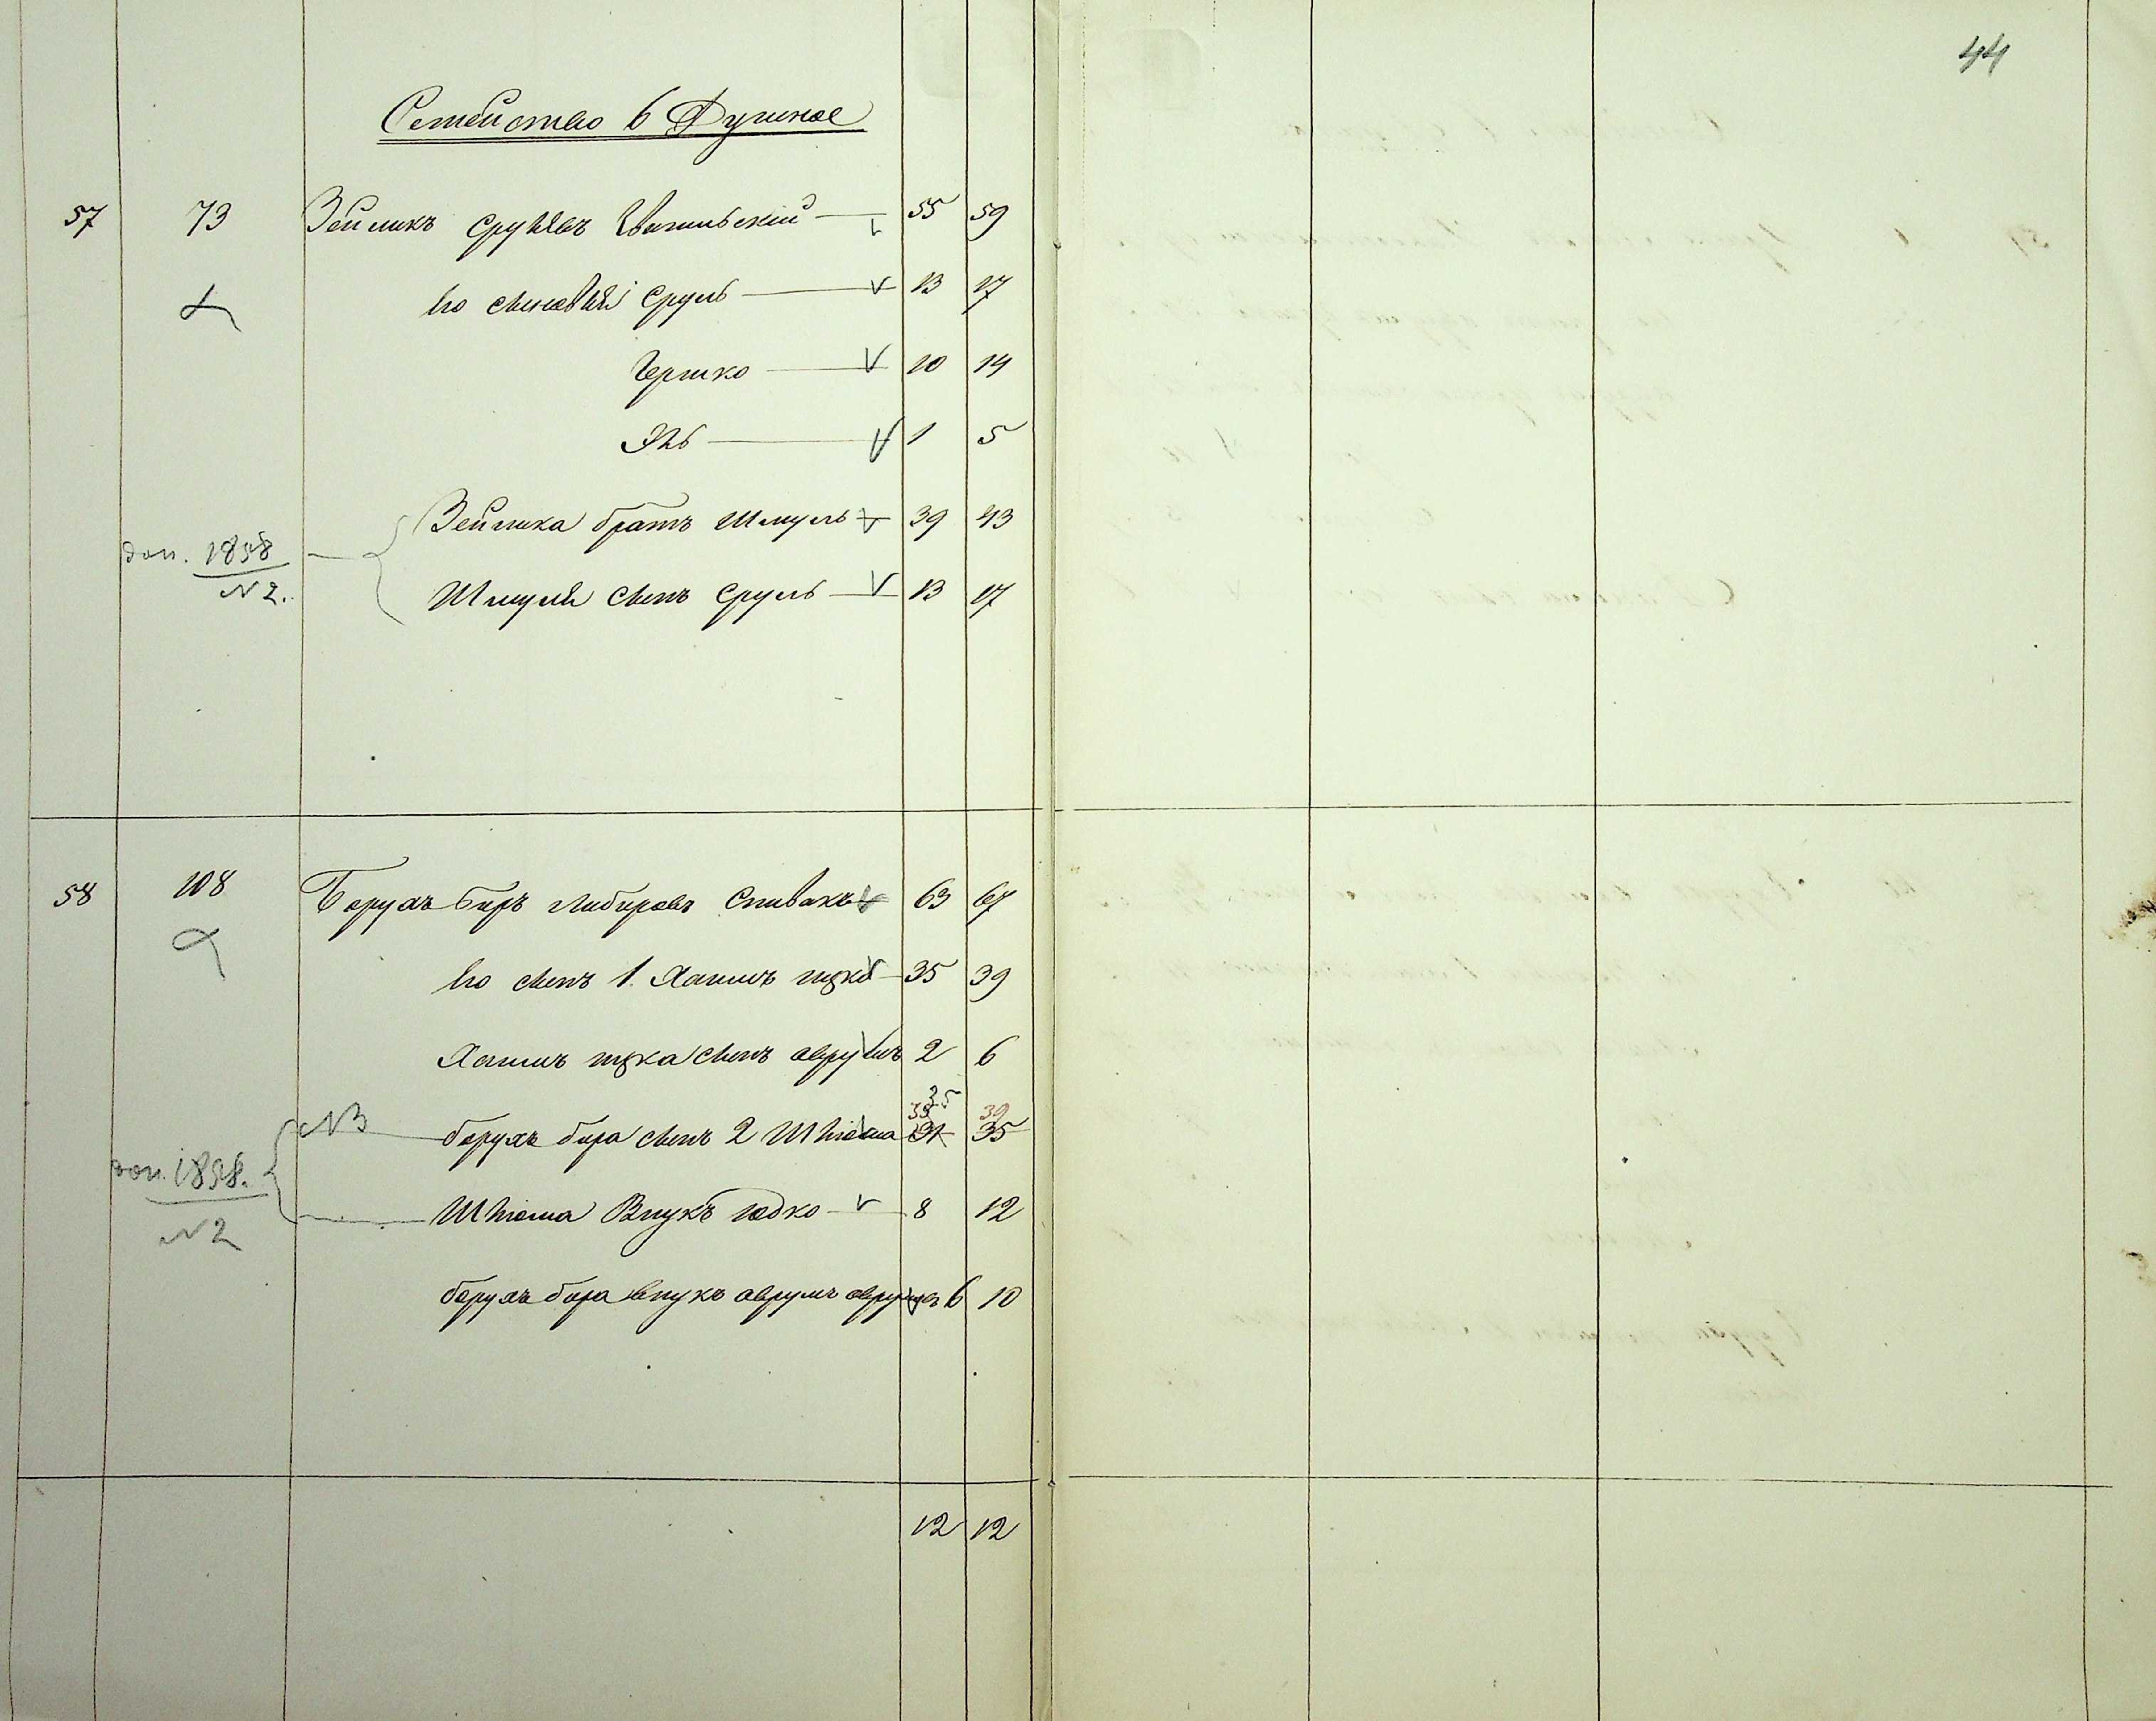 44
Семейство 6 Душное
57 73 Зейликъ Срулевъ Звягильскій 55 59
Его сыновья Сруль 13 17
Гершко 10 14
Эль 1 5
Зейлика братъ Шмуль 39 43
доп. 1858
N 2.
Шмуля сынъ Сруль 13 17
58 108 Борухъ Беръ Лейбировъ Спивакъ 63 67
Его сынъ 1. Хаимъ ицко 35 39
Хаимъ ицка сынъ аврумъ 2 6
35
35 39
N3 Борухъ бера сынъ 2 Шлёма 31 35
доп. 1858.
N 2
Шлёма Внукъ юдко 8 12
борухъ бера внукъ аврумъ 6 10
12 12